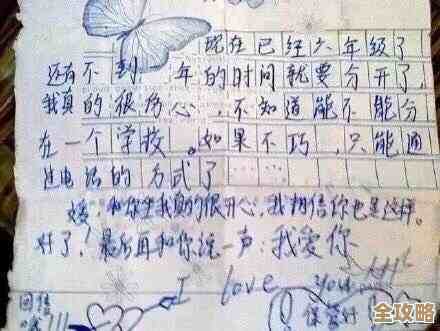 现在已经六年级了
还有不到一年的时间就要分开了,
我真的很伤心,不知道能不能分
在一个学校。如果不巧,只能通
过电话的方式了……
媛,和你坐我真的很开心,我相信你也是这样。
好了!最后再和你说一声:我爱你
I love you
回信
哦!!!
保管好
全攻略